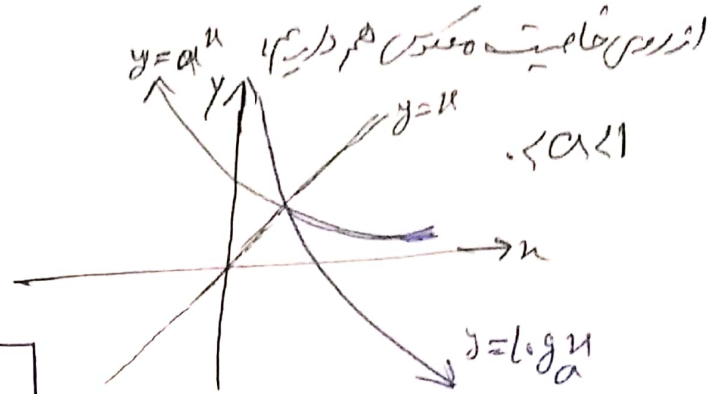 از روی خاصیت معکوس هم داریم:
y = a^x
y
y = x
0 < a < 1
x
y = log_a x